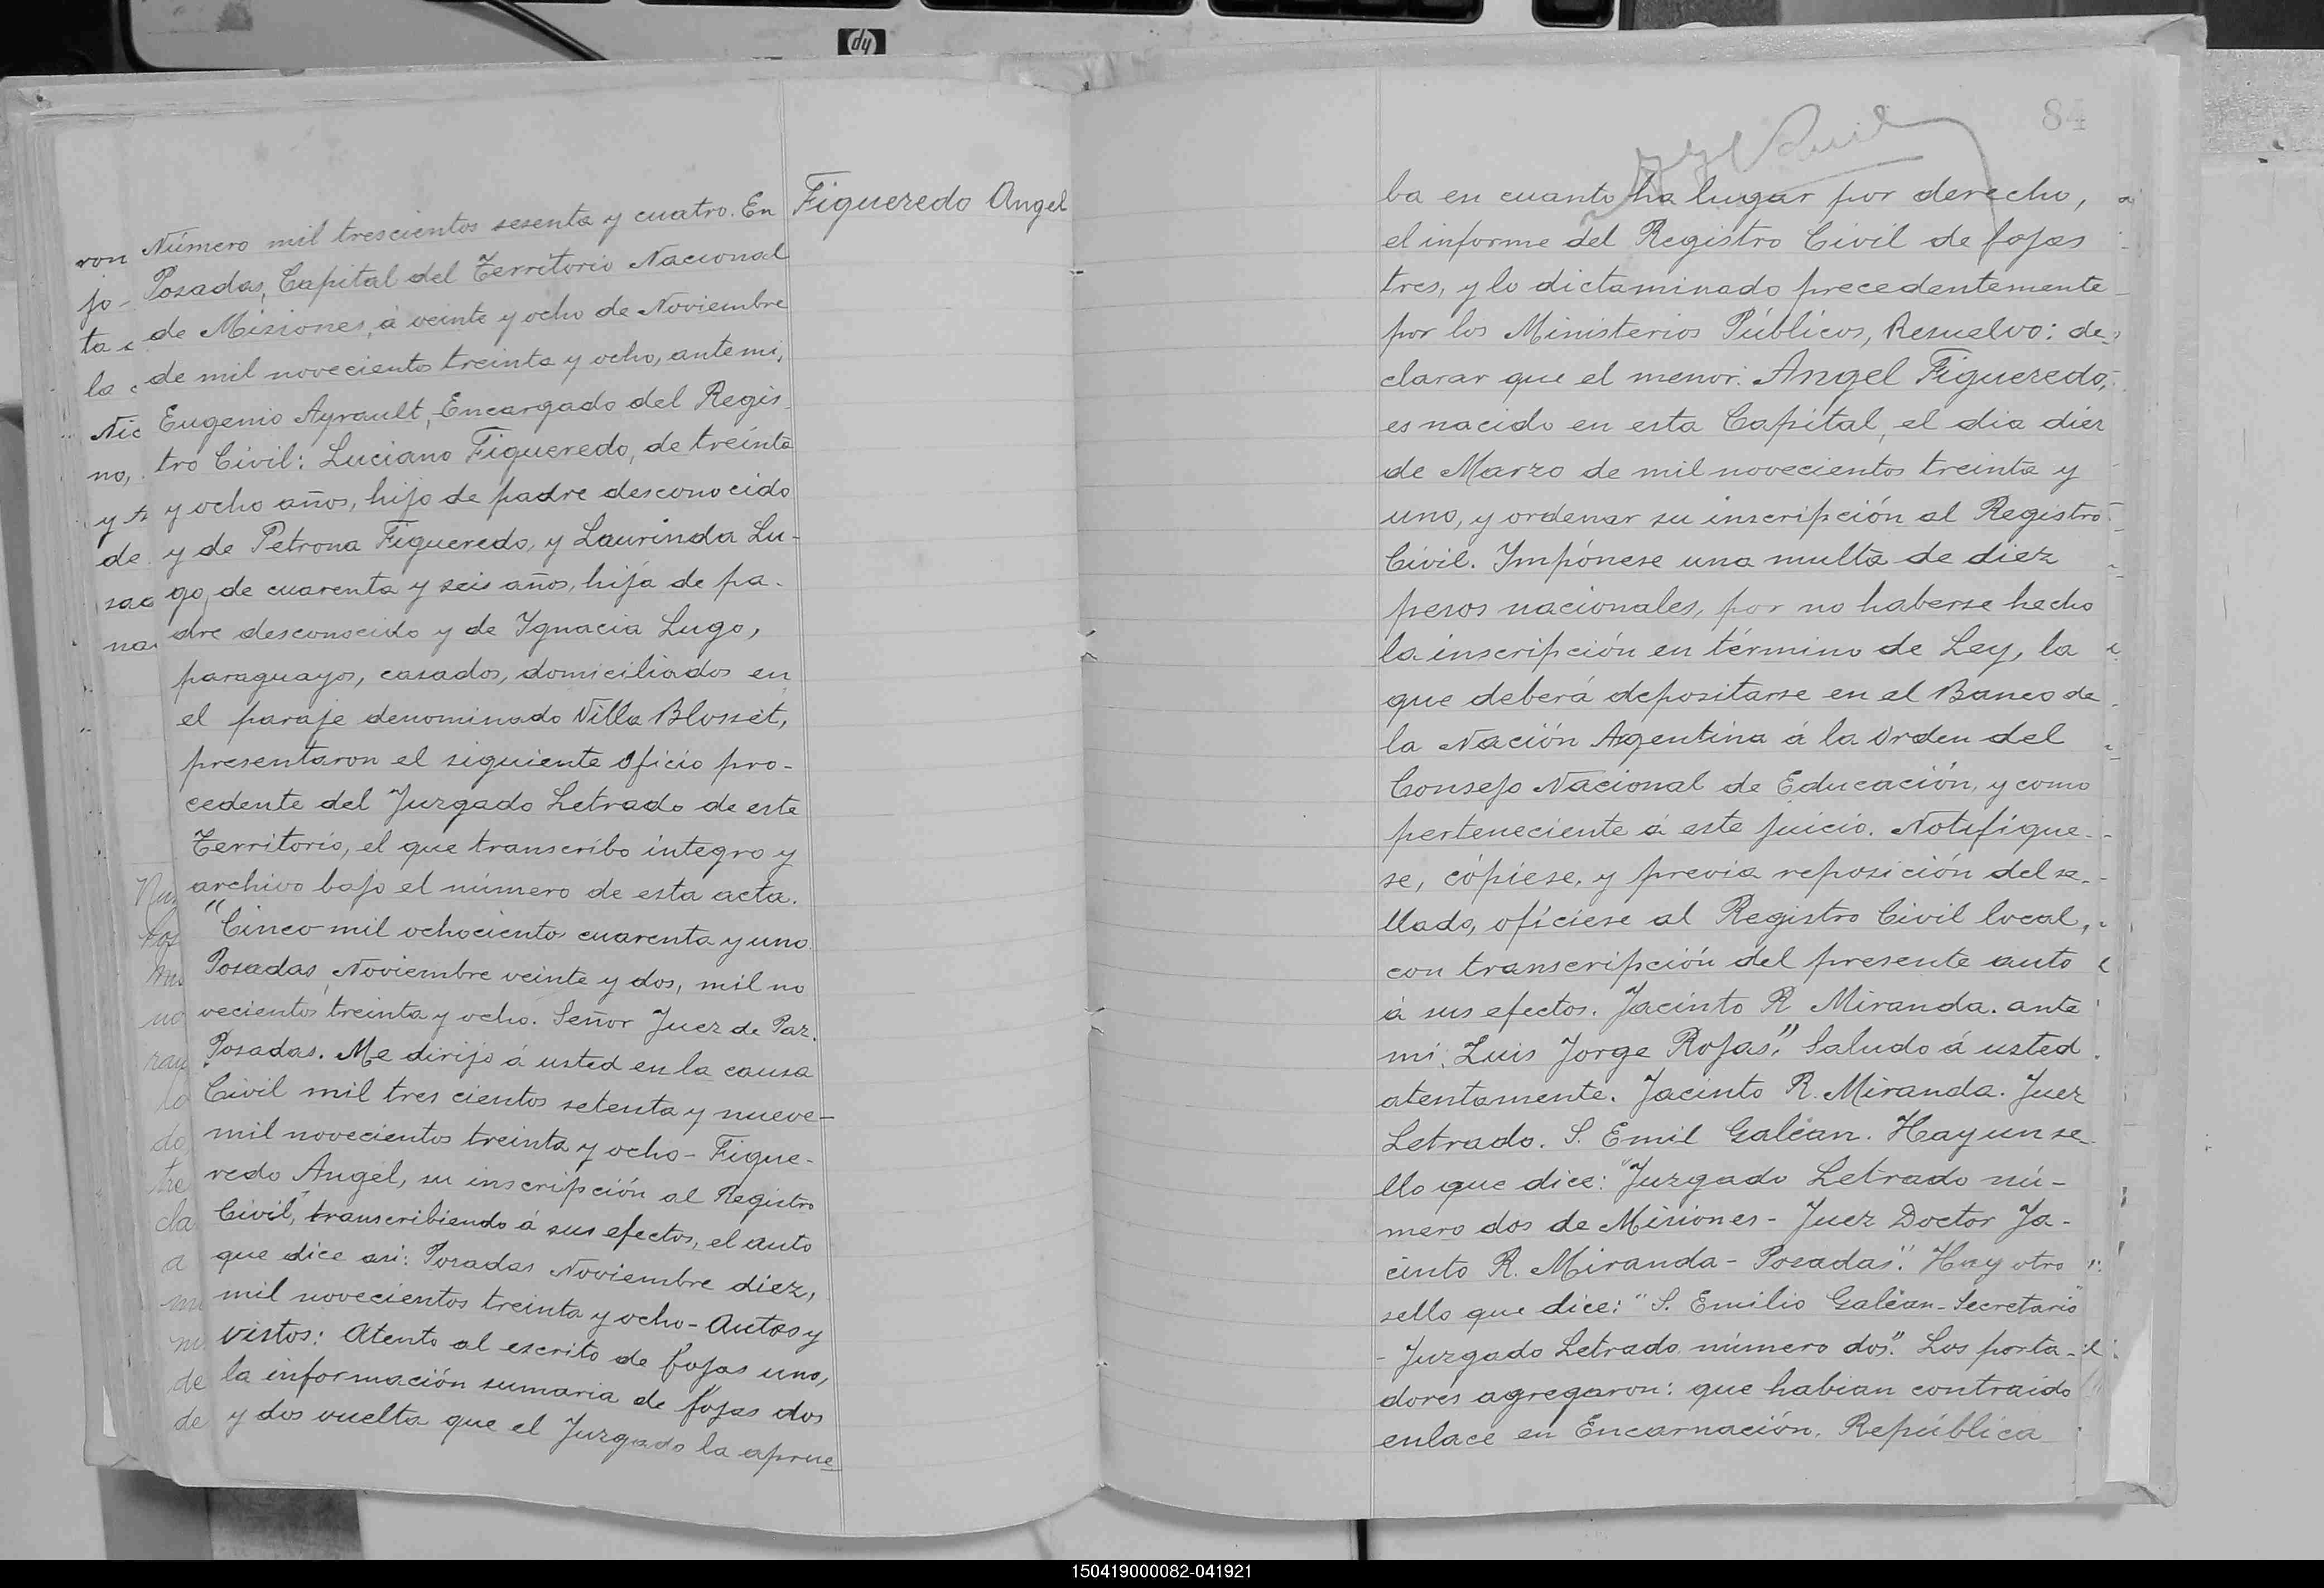 Figueredo Angel
Número mil trescientos sesenta y cuatro. En
Posadas, Capital del Territorio Nacional
de Misiones, á veinte y ocho de Noviembre
de mil novecientos treinta y ocho, ante mi,
Eugenio Ayrault, Encargado del Regis-
tro Civil: Luciano Figueredo, de treinta
y ocho años, hijo de padre desconocido
y de Petrona Figueredo, y Laurinda Lu-
go, de cuarenta y seis años, hija de pa-
dre desconocido y de Ygnacia Lugo,
paraguayos, casados, domiciliados en
el paraje denominado Villa Blosset,
presentaron el siguiente oficio pro-
cedente del Juzgado Letrado de este
Territorio, el que transcribo integro y
archivo bajo el número de esta acta.
"Cinco mil ochociento cuarenta y uno.
Posadas, Noviembre veinte y dos, mil no
vecientos treinta y ocho. Señor Juez de Paz.
Posadas. Me dirijo á usted en la causa
Civil mil tres cientos setenta y nueve-
mil novecientos treinta y ocho- Figue-
redo Angel, su inscripción al Registro
Civil", transcribiendo á sus efectos, el auto
que dice asi: Posadas Noviembre diez,
mil novecientos treinta y ocho- Autos y
vistos: Atento al escrito de fojas uno,
la información sumaria de fojas dos
y dos vuelta que el Juzgado la aprue
84
ba en cuanto ha lugar por derecho,
el informe del Registro Civil de fojas
tres, y lo dictaminado precedentemente
por los Ministerios Públicos, Resuelvo: de-
clarar que el menor: Angel Figueredo,
es nacido en esta Capital, el dia diez
de Marzo de mil novecientos treinta y
uno, y ordenar su inscripción al Registro
Civil. Ympónese una multa de diez
pesos nacionales, por no haberse hecho
la inscripción en término de Ley, la
que deberá depositarse en el Banco de
la Nación Argentina á la Orden del
Consejo Nacional de Educación, y como
perteneciente á este juicio. Notifique-
se, cópiese, y previa reposición del se-
llado, ofíciese al Registro Civil local,
con transcripción del presente auto
á sus efectos. Jacinto R Miranda. ante
mi: Luis Jorge Rojas". Saludo á usted
atentamente. Jacinto R. Miranda. Juez
Letrado. S. Emil Galéan. Hay un se
llo que dice: "Juzgado Letrado nú-
mero dos de Misiones- Juez Doctor Ja-
cinto R. Miranda- Posadas". Hay otro
sello que dice: "S. Emilio Galéan- Secretario"
- Juzgado Letrado número dos". Los porta-
dores agregaron: que habian contraido
enlace en Encarnación, República
150419000082-041921